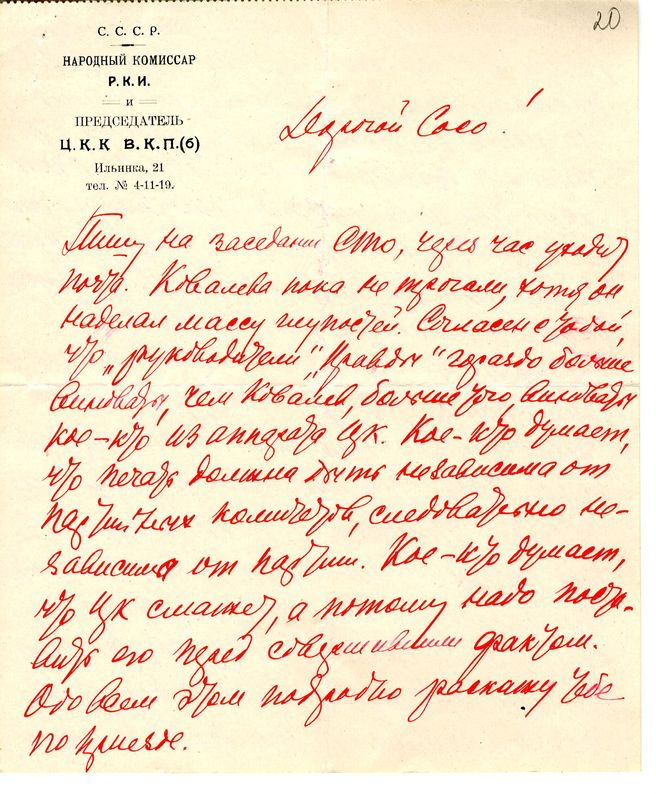 20
С. С. С. Р.
НАРОДНЫЙ КОМИССАР
Р. К. И.
и
ПРЕДСЕДАТЕЛЬ
Ц. К. К В. К. П. (б)
Ильинка, 21
тел. № 4-11-19.
Дорогой Сосо!
Пишу на заседании СТО, через час уходит
почта. Ковалева пока не трогали, хотя он
наделал массу глупостей. Согласен с тобой,
что „руководители" „Правды" гораздо больше
виноваты, чем Ковалев, больше того, виноваты
кое-кто из аппарата ЦК. Кое-кто думает,
что печать должна быть независима от
партийных комитетов, следовательно не-
зависима от партии. Кое-кто думает,
что ЦК смажет, а потому надо поста-
вить его перед совершившимся фактом.
Обо всем этом подробно расскажу тебе
по приезде.